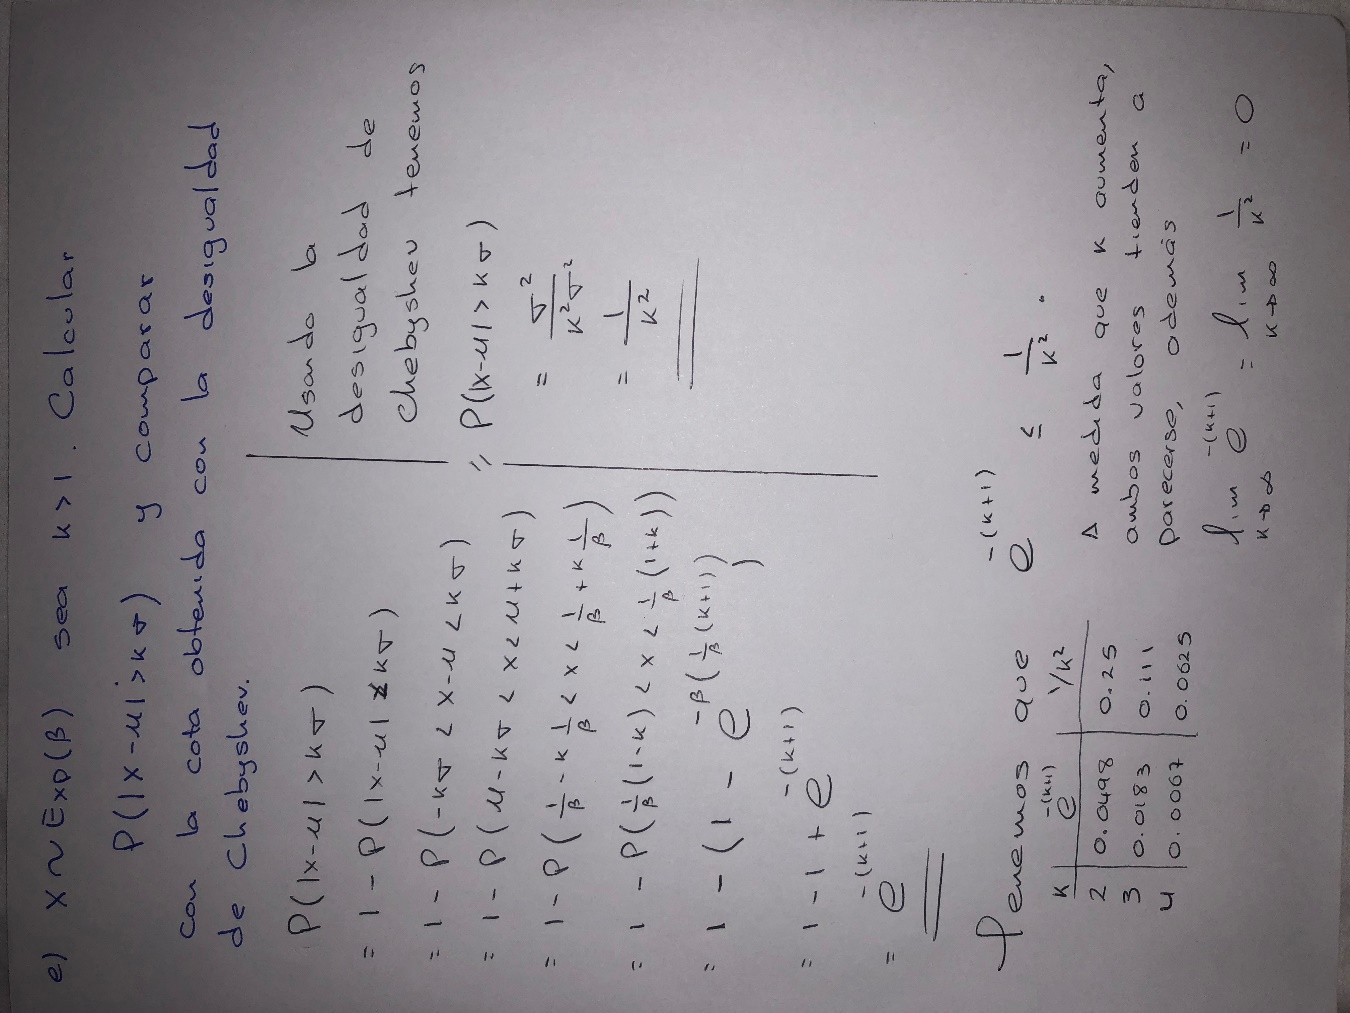 e) X ~ Exp(β) sea k>1. Calcular
P(|X-μ|>kσ) y comparar
con la cota obtenida con la desigualdad
de Chebyshev.
P(|X-μ|>kσ)
= 1 - P(|X-μ|≤kσ)
= 1 - P(-kσ < X-μ < kσ)
= 1 - P(μ-kσ < X < μ+kσ)
= 1 - P(1/β - k 1/β < X < 1/β + k 1/β)
= 1 - P(1/β(1-k) < X < 1/β(1+k))
= 1 - (1 - e^{-β(1/β(k+1))})
= 1 - 1 + e^{-(k+1)}
= e^{-(k+1)}
Usando la
desigualdad de
Chebyshev tenemos
P(|X-μ|>kσ)
= σ²/k²σ²
= 1/k²
Tenemos que e^{-(k+1)} ≤ 1/k².
k e^{-(k+1)} 1/k²
2 0.0498 0.25
3 0.0183 0.111
4 0.0067 0.0625
A medida que k aumenta,
ambos valores tienden a
parecerse, además
lim e^{-(k+1)} = lim 1/k² = 0
k→∞ k→∞